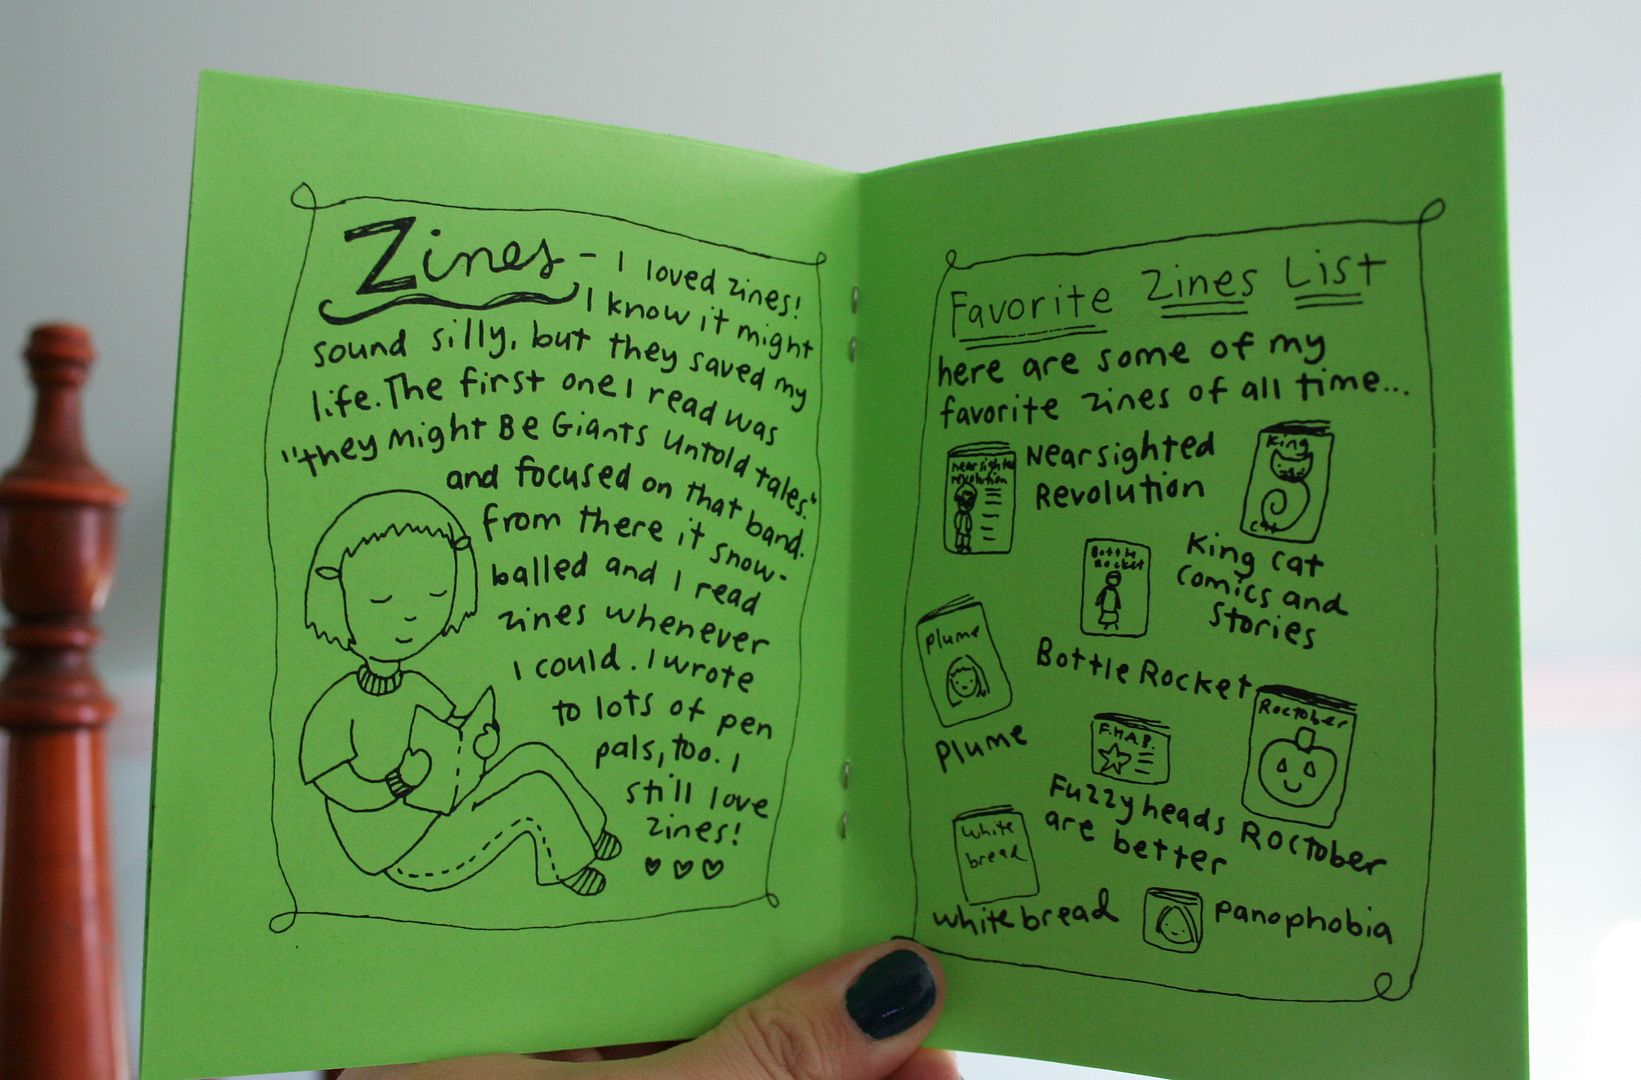 Zines - I loved zines!
I know it might
sound silly, but they saved my
life. The first one I read was
"They Might Be Giants Untold Tales."
and focused on that band.
From there it snow-
balled and I read
zines whenever
I could. I wrote
to lots of pen
pals, too. I
still love
zines!
Favorite Zines List
here are some of my
favorite zines of all time...
Nearsighted
Revolution
Nearsighted
Revolution
King
Cat
King Cat
Comics and
Stories
Bottle
Rocket
Bottle Rocket
Plume
Plume
F.H.A.B.
Fuzzyheads
are better
Roctober
Roctober
White
bread
White bread
Panophobia